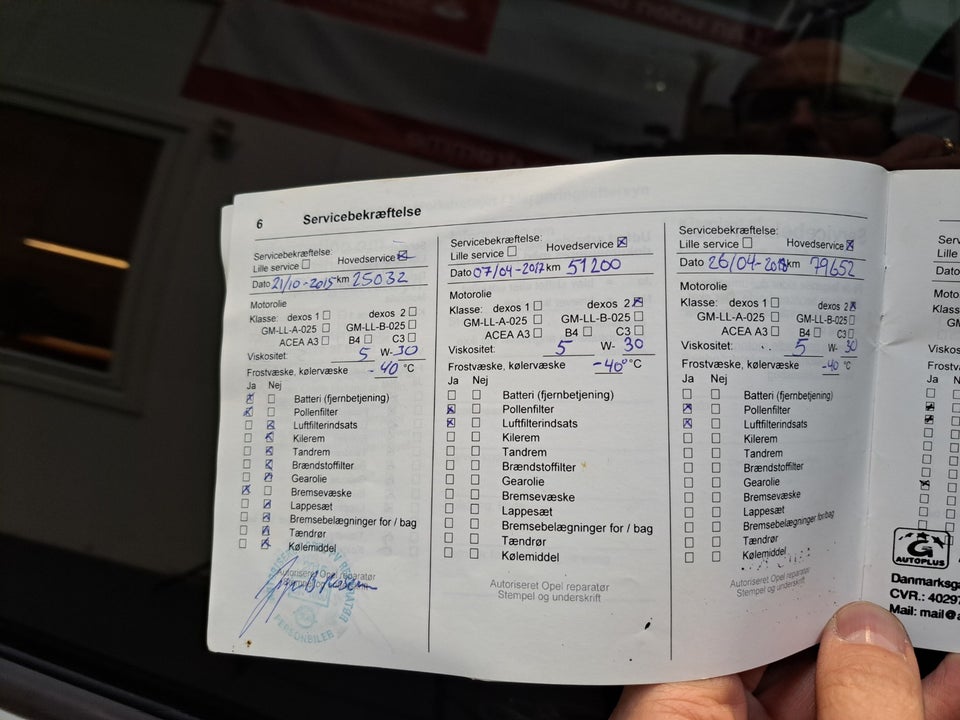 6 Servicebekræftelse
Servicebekræftelse:
Lille service ☐ Hovedservice ☒
Dato 21/10-2015 km 25032
Motorolie
Klasse: dexos 1 ☐ dexos 2 ☐
GM-LL-A-025 ☐ GM-LL-B-025 ☐
ACEA A3 ☐ B4 ☐ C3 ☐
Viskositet: 5 W- 30
Frostvæske, kølervæske -40 °C
Ja Nej
☒ ☐ Batteri (fjernbetjening)
☒ ☐ Pollenfilter
☐ ☒ Luftfilterindsats
☐ ☒ Kilerem
☐ ☒ Tandrem
☐ ☒ Brændstoffilter
☐ ☒ Gearolie
☒ ☐ Bremsevæske
☐ ☒ Lappesæt
☐ ☒ Bremsebelægninger for / bag
☐ ☒ Tændrør
☐ ☒ Kølemiddel
Autoriseret Opel reparatør
PERSONBILER
Servicebekræftelse:
Lille service ☐ Hovedservice ☒
Dato 07/04-2017 km 51200
Motorolie
Klasse: dexos 1 ☐ dexos 2 ☒
GM-LL-A-025 ☐ GM-LL-B-025 ☐
ACEA A3 ☐ B4 ☐ C3 ☐
Viskositet: 5 W- 30
Frostvæske, kølervæske -40° °C
Ja Nej
☐ ☐ Batteri (fjernbetjening)
☒ ☐ Pollenfilter
☒ ☐ Luftfilterindsats
☐ ☐ Kilerem
☐ ☐ Tandrem
☐ ☐ Brændstoffilter
☐ ☐ Gearolie
☐ ☐ Bremsevæske
☐ ☐ Lappesæt
☐ ☐ Bremsebelægninger for / bag
☐ ☐ Tændrør
☐ ☐ Kølemiddel
Autoriseret Opel reparatør
Stempel og underskrift
Servicebekræftelse:
Lille service ☐ Hovedservice ☒
Dato 26/04-2018 km 79652
Motorolie
Klasse: dexos 1 ☐ dexos 2 ☒
GM-LL-A-025 ☐ GM-LL-B-025 ☐
ACEA A3 ☐ B4 ☐ C3 ☐
Viskositet: 5 W- 30
Frostvæske, kølervæske -40 °C
Ja Nej
☐ ☐ Batteri (fjernbetjening)
☒ ☐ Pollenfilter
☒ ☐ Luftfilterindsats
☐ ☐ Kilerem
☐ ☐ Tandrem
☐ ☐ Brændstoffilter
☐ ☐ Gearolie
☐ ☐ Bremsevæske
☐ ☐ Lappesæt
☐ ☐ Bremsebelægninger for/bag
☐ ☐ Tændrør
☐ ☐ Kølemiddel
Autoriseret Opel reparatør
Stempel og underskrift
Lille
Dato
Motorolie
Klasse
Ja
G
AUTOPLUS
CVR.: 40297
Mail: mail@a